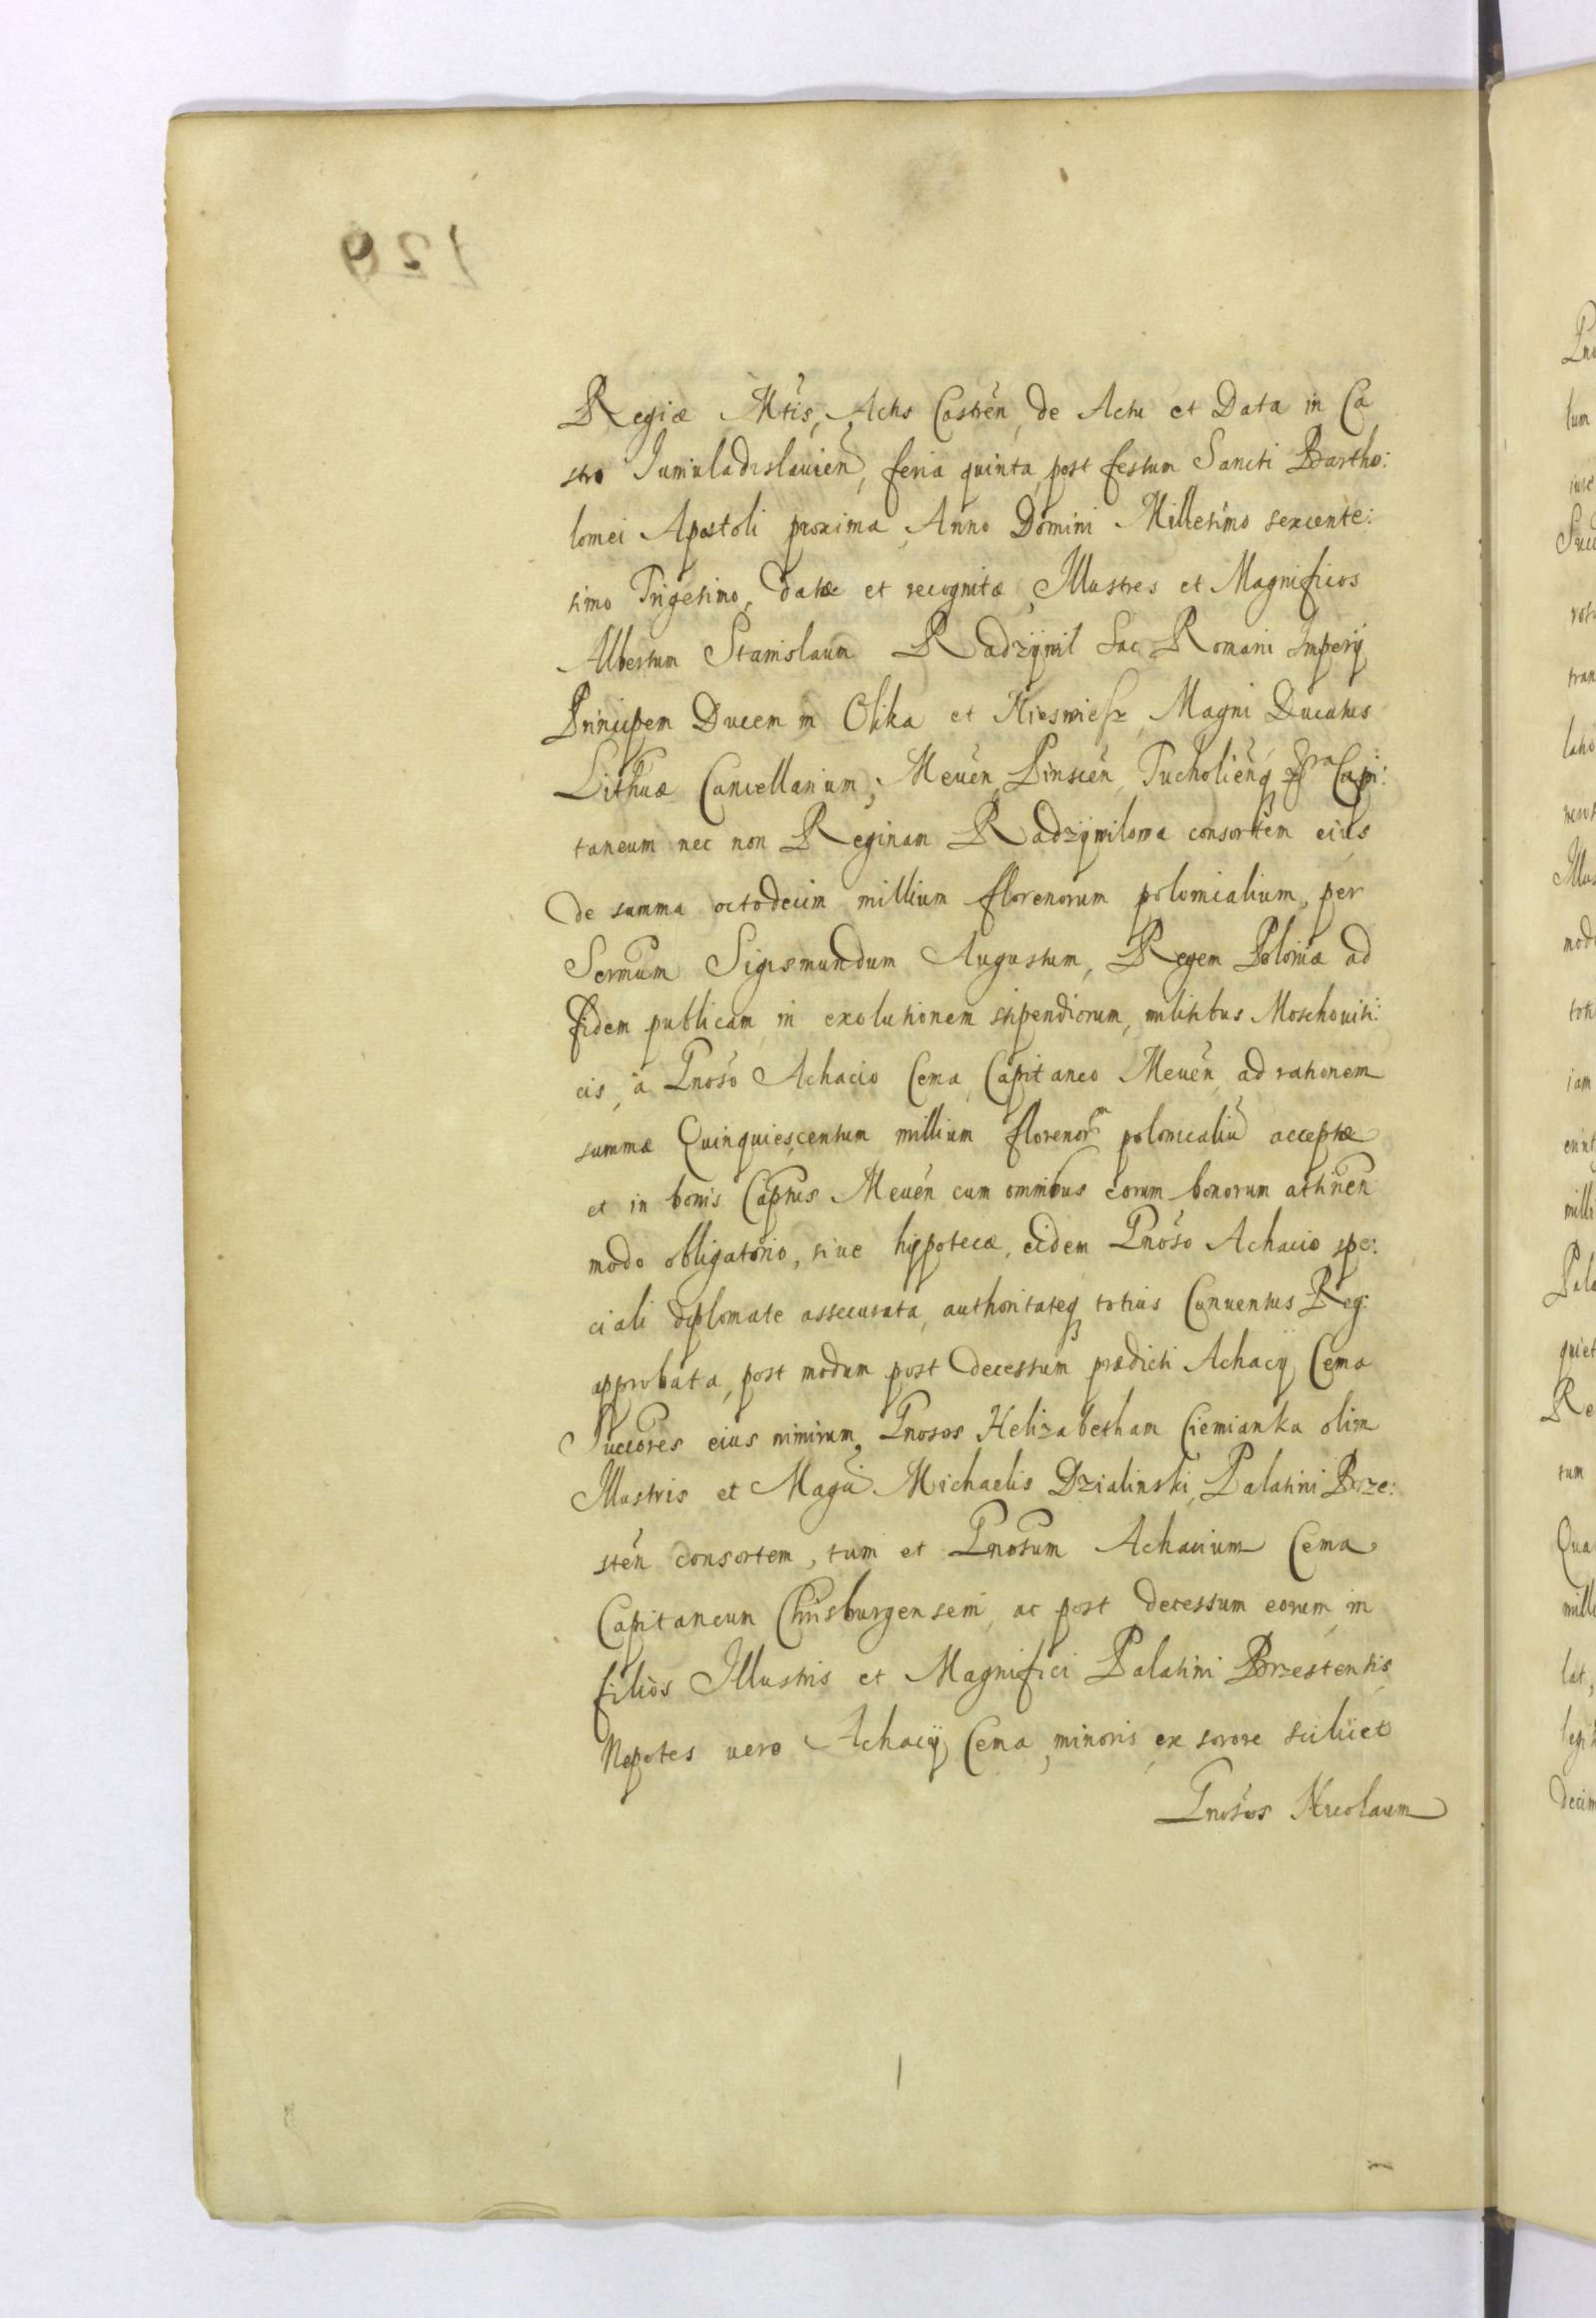 129
Regiæ Mtis, Actis Castren, de Actu et Data in Ca
stro Iuniuladislauien, feria quinta, post festum Sancti Bartho:
lomei Apostoli proxima, Anno Domini Millesimo sexcente:
simo Trigesimo, datæ et recognitæ, Illustres et Magnificos
Albertum Stanislaum Radziwil Sac Romani Imperij
Principem Ducem in Olika et Nieswiesz, Magni Ducatus
Lithuæ Cancellarium, Meuen, Pinscen, Tucholienq Capi:
taneum nec non Reginam Radziwilowa consortem eius
de summa octodecim millium florenorum polonicalium, per
Sermum Sigismundum Augustum, Regem Poloniæ ad
fidem publicam in exolutionem stipendiorum, militibus Moschouiti:
cis, a Gnoso Achacio Cema, Capitaneo Meuen, ad rationem
summæ Quinquiescentum millium florenorm polonicaliu acceptæ
et in bonis Captus Meuen cum omnibus eorum bonorum attinen
modo obligatorio, siue hippotecæ, eidem Gnoso Achacio spe:
ciali diplomate assecurata, authoritateq totius Conuentus Reg:
approbata, post modum post decessum prædicti Achacij Cema
Succores eius nimirum, Gnosos Helizabetham Ciemianka olim
Illustris et Magci Michaelis Dzialinski, Palatini Brze:
sten consortem, tum et Gnosum Achacium Cema
Capitaneum Chrisburgensem, ac post decessum eorum, in
filios Illustris et Magnifici Palatini Brzestensis
Nepotes uero Achacij Cema, minoris, ex sorore scilicet
Gnosos Nicolaum